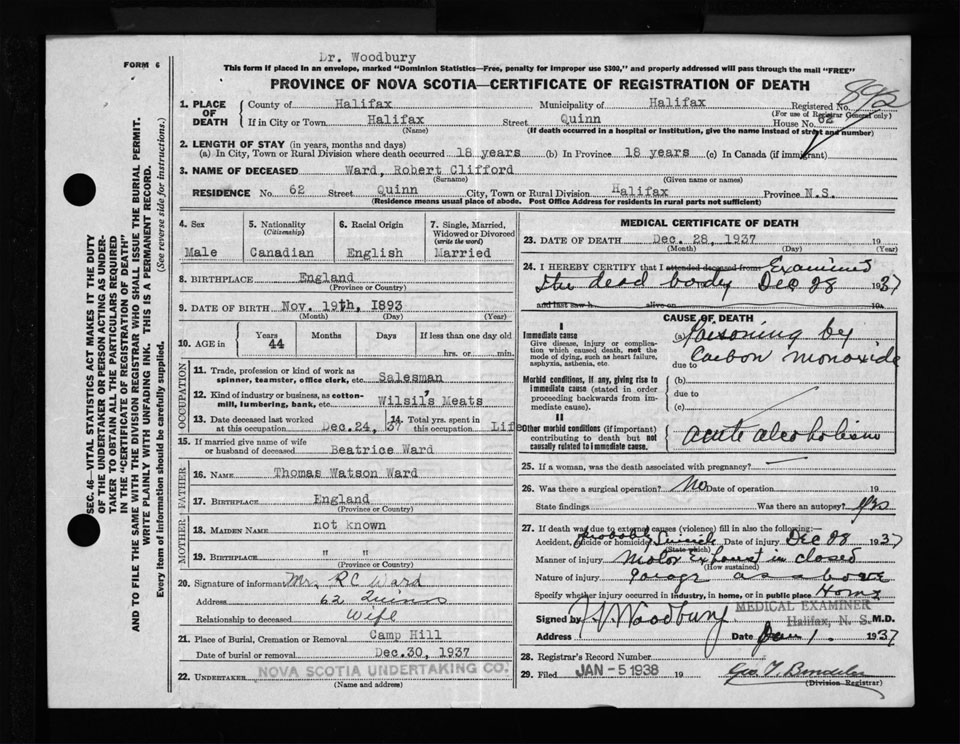 Dr. Woodbury
FORM 6
This form if placed in an envelope, marked "Dominion Statistics—Free, penalty for improper use $300," and properly addressed will pass through the mail "FREE"
PROVINCE OF NOVA SCOTIA—CERTIFICATE OF REGISTRATION OF DEATH
1. PLACE OF DEATH
County of Halifax Municipality of Halifax Registered No.
(For use of Registrar General only)
If in City or Town Halifax Street Quinn House No. 62
(Name) (If death occurred in a hospital or institution, give the name instead of street and number)
2. LENGTH OF STAY (in years, months and days)
(a) In City, Town or Rural Division where death occurred 18 years (b) In Province 18 years (c) In Canada (if immigrant)
3. NAME OF DECEASED Ward, Robert Clifford
(Surname) (Given name or names)
RESIDENCE No. 62 Street Quinn City, Town or Rural Division Halifax Province N.S.
(Residence means usual place of abode. Post Office Address for residents in rural parts not sufficient)
SEC. 46—VITAL STATISTICS ACT MAKES IT THE DUTY
OF THE UNDERTAKER OR PERSON ACTING AS UNDER-
TAKER TO OBTAIN ALL THE PARTICULARS REQUIRED
IN THE "CERTIFICATE OF REGISTRATION OF DEATH"
AND TO FILE THE SAME WITH THE DIVISION REGISTRAR WHO SHALL ISSUE THE BURIAL PERMIT.
WRITE PLAINLY WITH UNFADING INK. THIS IS A PERMANENT RECORD.
Every item of information should be carefully supplied. (See reverse side for instructions.)
4. Sex 5. Nationality (Citizenship) 6. Racial Origin 7. Single, Married, Widowed or Divorced (write the word)
Male Canadian English Married
8. BIRTHPLACE England
(Province or Country)
9. DATE OF BIRTH Nov. 19th, 1893
(Month) (Day) (Year)
10. AGE in Years Months Days If less than one day old
44 hrs. or min.
OCCUPATION
11. Trade, profession or kind of work as spinner, teamster, office clerk, etc. Salesman
12. Kind of industry or business, as cotton-mill, lumbering, bank, etc. Wilsil's Meats
13. Date deceased last worked at this occupation Dec. 24, 37 14. Total yrs. spent in this occupation Life
15. If married give name of wife or husband of deceased Beatrice Ward
FATHER
16. NAME Thomas Watson Ward
17. BIRTHPLACE England
(Province or Country)
MOTHER
18. MAIDEN NAME not known
19. BIRTHPLACE " "
(Province or Country)
20. Signature of informant Mr. R C Ward
Address 62 Quinn
Relationship to deceased Wife
21. Place of Burial, Cremation or Removal Camp Hill
Date of burial or removal Dec. 30, 1937
22. UNDERTAKER NOVA SCOTIA UNDERTAKING CO.
(Name and address)
MEDICAL CERTIFICATE OF DEATH
23. DATE OF DEATH Dec. 28, 1937 19
(Month) (Day) (Year)
24. I HEREBY CERTIFY that I attended deceased from Examined
the dead body Dec 28 1937
and last saw h alive on 19
CAUSE OF DEATH
I
Immediate cause
Give disease, injury or complication which caused death, not the mode of dying, such as heart failure, asphyxia, asthenia, etc.
(a) Poisoning by
Carbon monoxide
due to
Morbid conditions, if any, giving rise to immediate cause (stated in order proceeding backwards from immediate cause).
(b)
due to
(c)
II
Other morbid conditions (if important) contributing to death but not causally related to immediate cause.
acute alcoholism
25. If a woman, was the death associated with pregnancy?
26. Was there a surgical operation? No Date of operation 19
State findings Was there an autopsy? yes
27. If death was due to external causes (violence) fill in also the following:—
Accident, suicide or homicide? Probably Suicide Date of injury Dec 28 1937
(State which)
Manner of injury Motor Exhaust in closed
(How sustained)
Nature of injury garage as above
Specify whether injury occurred in industry, in home, or in public place Home
Signed by Woodbury M.D.
MEDICAL EXAMINER
Halifax, N. S.
Address Date Jan 1. 1937
28. Registrar's Record Number
29. Filed JAN -5 1938 19
(Division Registrar)